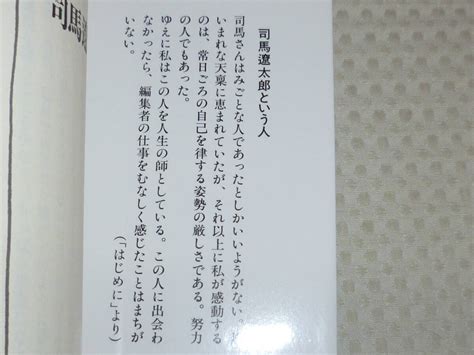 司馬遼
司馬遼太郎という人
司馬さんはみごとな人であったとしかいいようがない。
いまれな天稟に恵まれていたが、それ以上に私が感動する
のは、常日ごろの自己を律する姿勢の厳しさである。努力
の人でもあった。
ゆえに私はこの人を人生の師としている。この人に出会わ
なかったら、編集者の仕事をむなしく感じたことはまちが
いない。
(「はじめに」より)